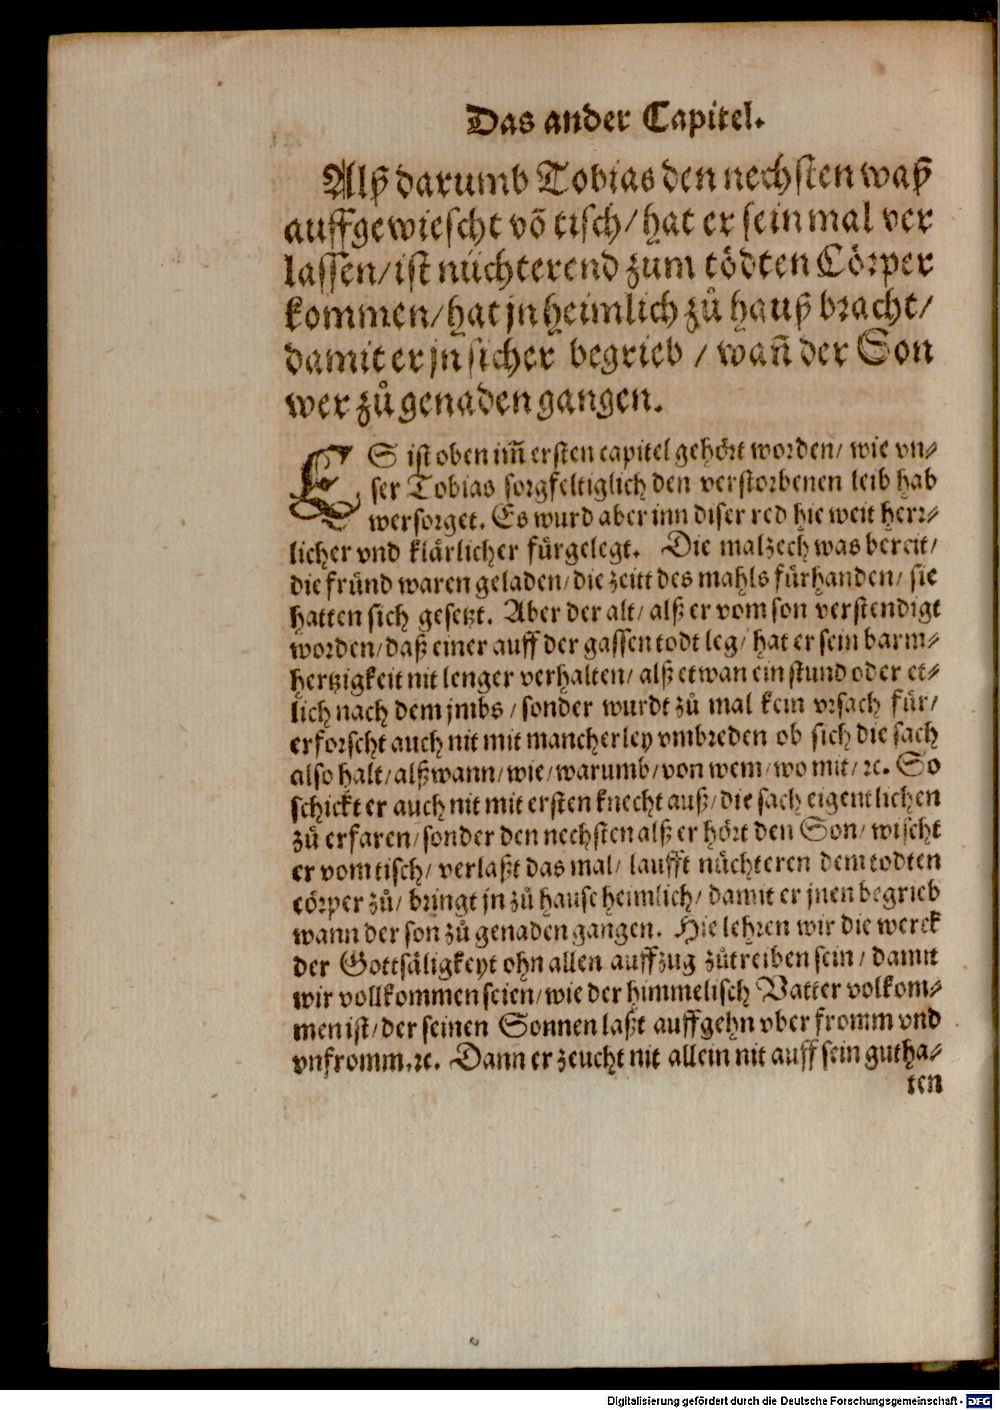 Das ander Capitel.
Alß darumb Tobias den nechsten waß
auffgewiescht võ tisch/ hat er sein mal ver
lassen/ ist nüchterend zum tödten Cörper
kommen/ hat jn heimlich zů hauß bracht/
damit er jn sicher begrieb / wañ der Son
wer zů genaden gangen.
ES ist oben im̃ ersten capitel gehört worden/ wie vn⸗
ser Tobias sorgfeltiglich den verstorbenen leib hab
wersorget. Es wurd aber inn diser red hie weit herr⸗
licher vnd klärlicher fürgelegt. Die malzech was bereit/
die fründ waren geladen/ die zeitt des mahls fürhanden/ sie
hatten sich gesetzt. Aber der alt/ alß er vom son verstendigt
worden/ daß einer auff der gassen todt leg/ hat er sein barm⸗
hertzigkeit nit lenger verhalten/ alß etwan ein stund oder et⸗
lich nach dem jmbs / sonder wurdt zů mal kein vrsach für/
erforscht auch nit mit mancherley vmbreden ob sich die sach
also halt/ alß wann/ wie/ warumb/ von wem/ wo mit/ ꝛc. So
schickt er auch nit mit ersten knecht auß/ die sach eigentlichen
zů erfaren/ sonder den nechsten alß er hört den Son/ wischt
er vom tisch/ verlaßt das mal/ laufft nüchteren dem todten
cörper zů/ bringt jn zů hause heimlich/ damit er jnen begrieb
wann der son zů genaden gangen. Hie lehren wir die werck
der Gottsäligkeyt ohn allen auffzug zůtreiben sein/ damit
wir vollkommen seien/ wie der himmelisch Vatter volkom⸗
men ist/ der seinen Sonnen laßt auffgehn vber fromm vnd
vnfromm.ꝛc. Dann er zeucht nit allein nit auff sein gutha⸗
ten
Digitalisierung gefördert durch die Deutsche Forschungsgemeinschaft - DFG